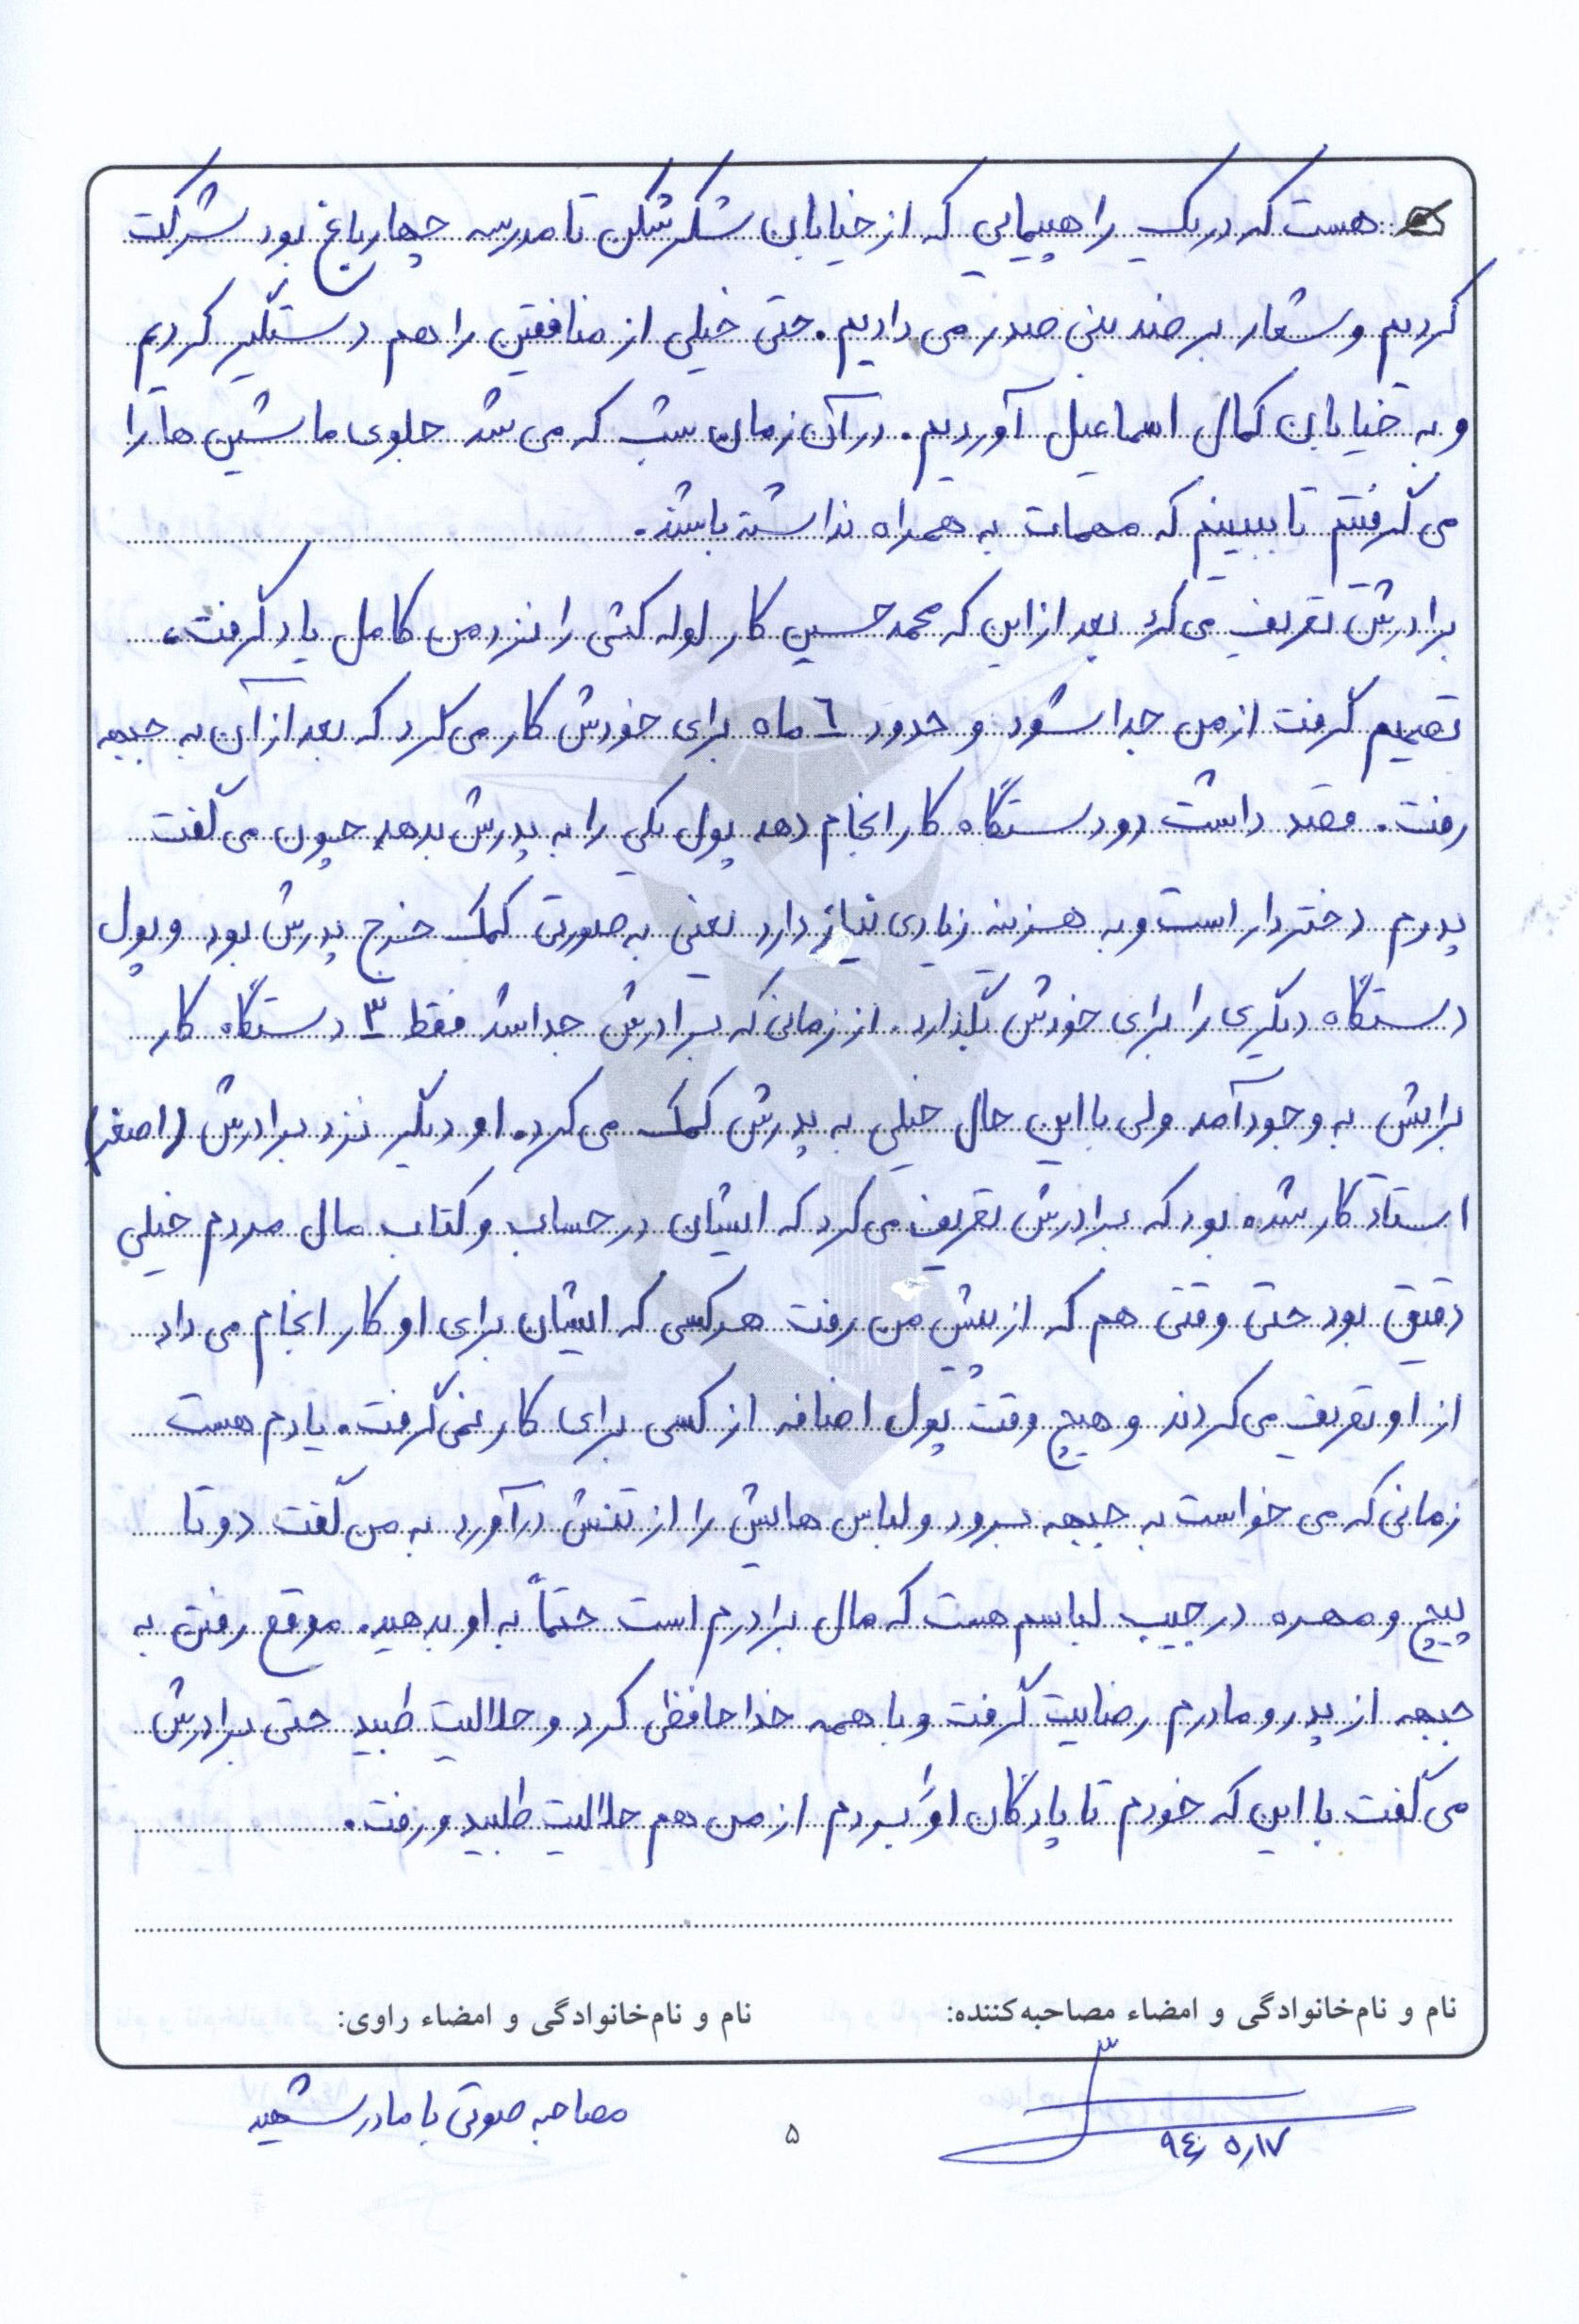 هست که در یک راهپیمایی که از خیابان شکرشکن تا مدرسه چهارباغ بود شرکت
کردیم و شعار بر ضد بنی صدر می دادیم. حتی خیلی از منافقین را هم دستگیر کردیم
و به خیابان کمال اسماعیل آوردیم. در آن زمان شب که می شد جلوی ماشین ها را
می گرفتیم تا ببینیم که مهمات به همراه نداشته باشند.
برادرش تعریف می کرد بعد از این که محمد حسین کار لوله کشی را نزد من کامل یاد گرفت،
تصمیم گرفت از من جدا شود و حدود ٦ ماه برای خودش کار می کرد که بعد از آن به جبهه
رفت. قصد داشت دو دستگاه کار انجام دهد پول یکی را به پدرش بدهد چون می گفت
پدرم دختردار است و به هزینه زیادی نیاز دارد یعنی به صورتی کمک خرج پدرش بود و پول
دستگاه دیگری را برای خودش بگذارد. از زمانی که برادرش جدا شد فقط ٣ دستگاه کار
برایش به وجود آمد ولی با این حال خیلی به پدرش کمک می کرد. او دیگر نزد برادرش (اصغر)
استاد کار شده بود که برادرش تعریف می کرد که ایشان در حساب و کتاب مال مردم خیلی
دقیق بود حتی وقتی هم که از پیش من رفت هرکسی که ایشان برای او کار انجام می داد
از او تعریف می کردند و هیچ وقت پول اضافه از کسی برای کار نمی گرفت. یادم هست
زمانی که می خواست به جبهه برود و لباس هایش را از تنش درآورد به من گفت دو تا
پیچ و مهره در جیب لباسم هست که مال برادرم است حتماً به او بدهید. موقع رفتن به
جبهه از پدر و مادرم رضایت گرفت و با همه خداحافظی کرد و حلالیت طبید حتی برادرش
می گفت با این که خودم تا پادگان او را بردم از من هم حلالیت طلبید و رفت.
نام و نام‌خانوادگی و امضاء مصاحبه‌کننده: نام و نام‌خانوادگی و امضاء راوی:
٩٤٫٥٫١٧ ۵ مصاحبه صوتی با مادر شهید